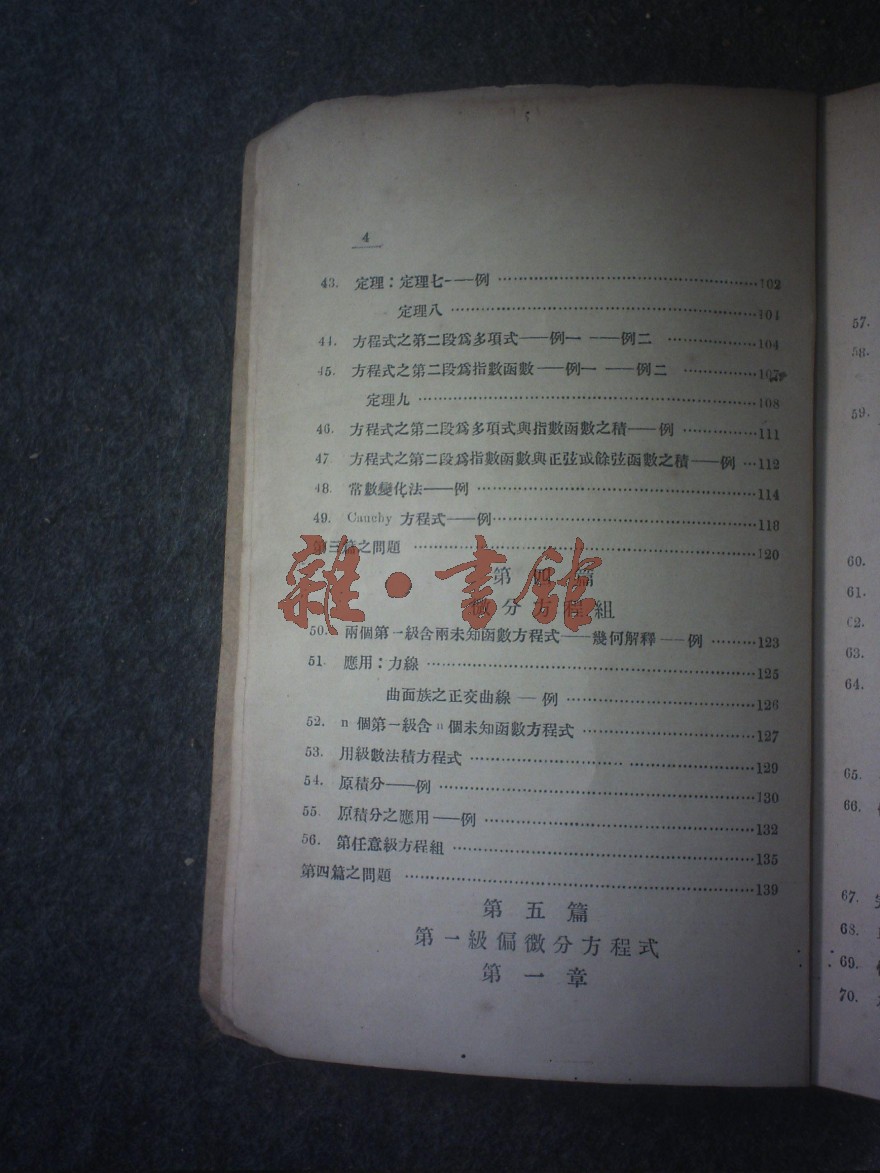 4
43. 定理：定理七——例 ……………102
定理八 ……………104
44. 方程式之第二段爲多項式——例一 ——例二 ……………104
45. 方程式之第二段爲指數函數——例一 ——例二 ……………107
定理九 ……………108
46. 方程式之第二段爲多項式與指數函數之積——例 ……………111
47 方程式之第二段爲指數函數與正弦或餘弦函數之積——例 …112
48. 常數變化法——例 ……………114
49. Cauchy 方程式——例……………118
第三篇之問題 ……………120
第四篇
微分方程組
50. 兩個第一級含兩未知函數方程式——幾何解釋——例 ………123
51 應用：力線 ……………125
曲面族之正交曲線 — 例 ……………126
52. n 個第一級含 n 個未知函數方程式 ……………127
53. 用級數法積方程式 ……………129
54. 原積分——例 ……………130
55. 原積分之應用——例 ……………132
56. 第任意級方程組 ……………135
第四篇之問題 ……………139
第五篇
第一級偏微分方程式
第一章
雜·書館
57.
58.
59.
60.
61.
62.
63.
64.
65.
66.
67.
68.
69.
70.